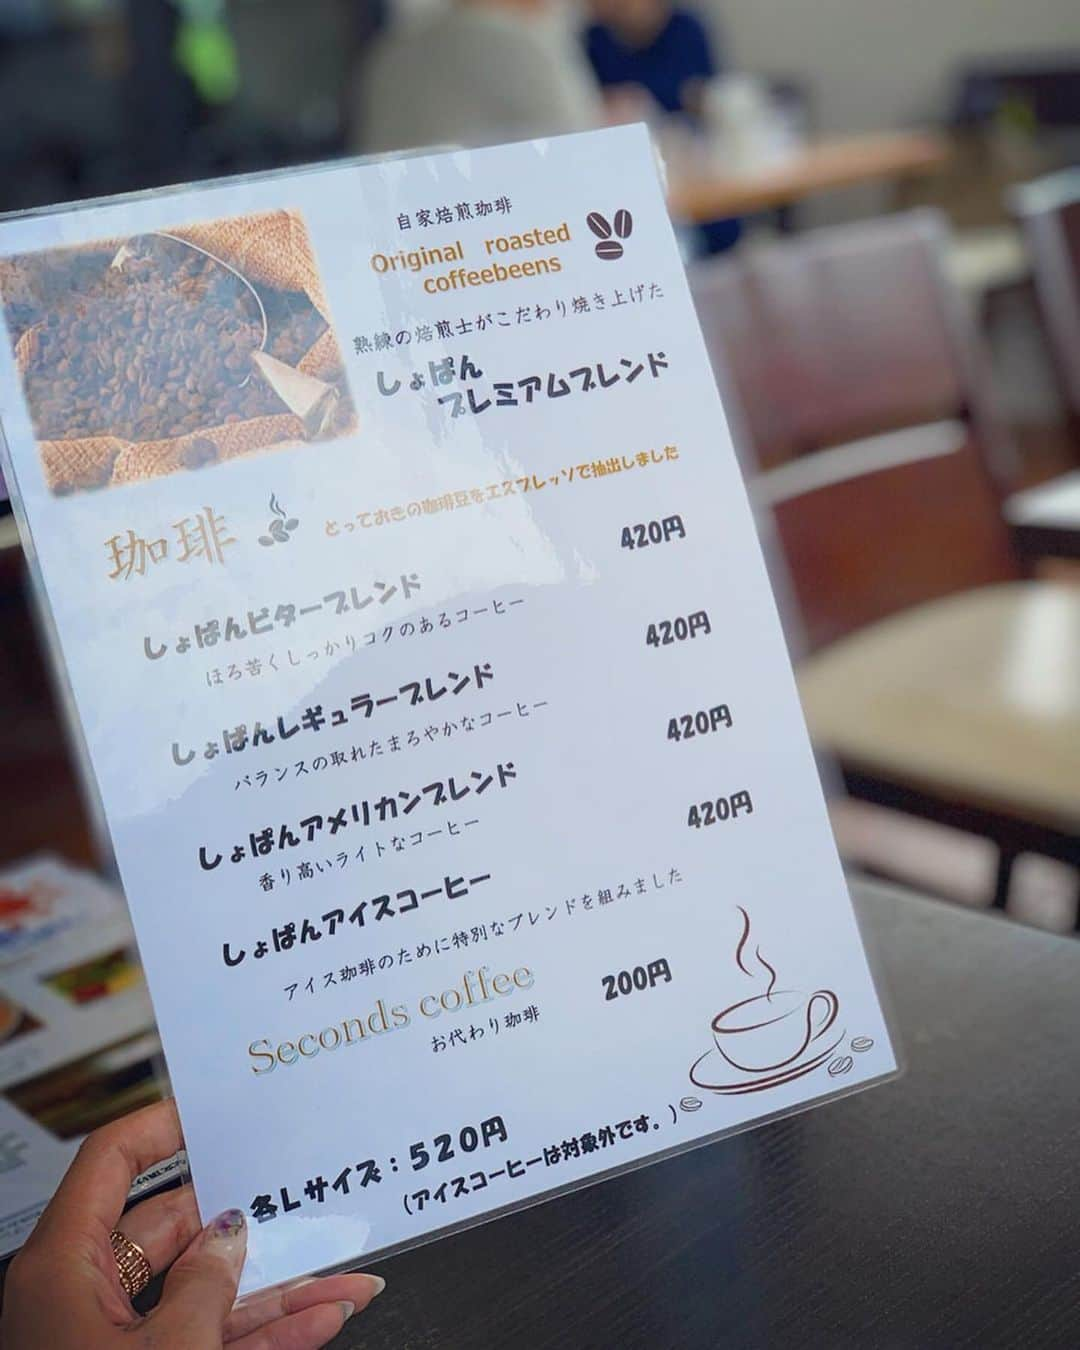 自家焙煎珈琲
Original roasted
coffeebeens
熟練の焙煎士がこだわり焼き上げた
しょぱん
プレミアムブレンド
珈琲
とっておきの珈琲豆をエスプレッソで抽出しました
しょぱんビターブレンド 420円
ほろ苦くしっかりコクのあるコーヒー
しょぱんレギュラーブレンド 420円
バランスの取れたまろやかなコーヒー
しょぱんアメリカンブレンド 420円
香り高いライトなコーヒー
しょぱんアイスコーヒー 420円
アイス珈琲のために特別なブレンドを組みました
Seconds coffee 200円
お代わり珈琲
各Lサイズ：520円
(アイスコーヒーは対象外です。)